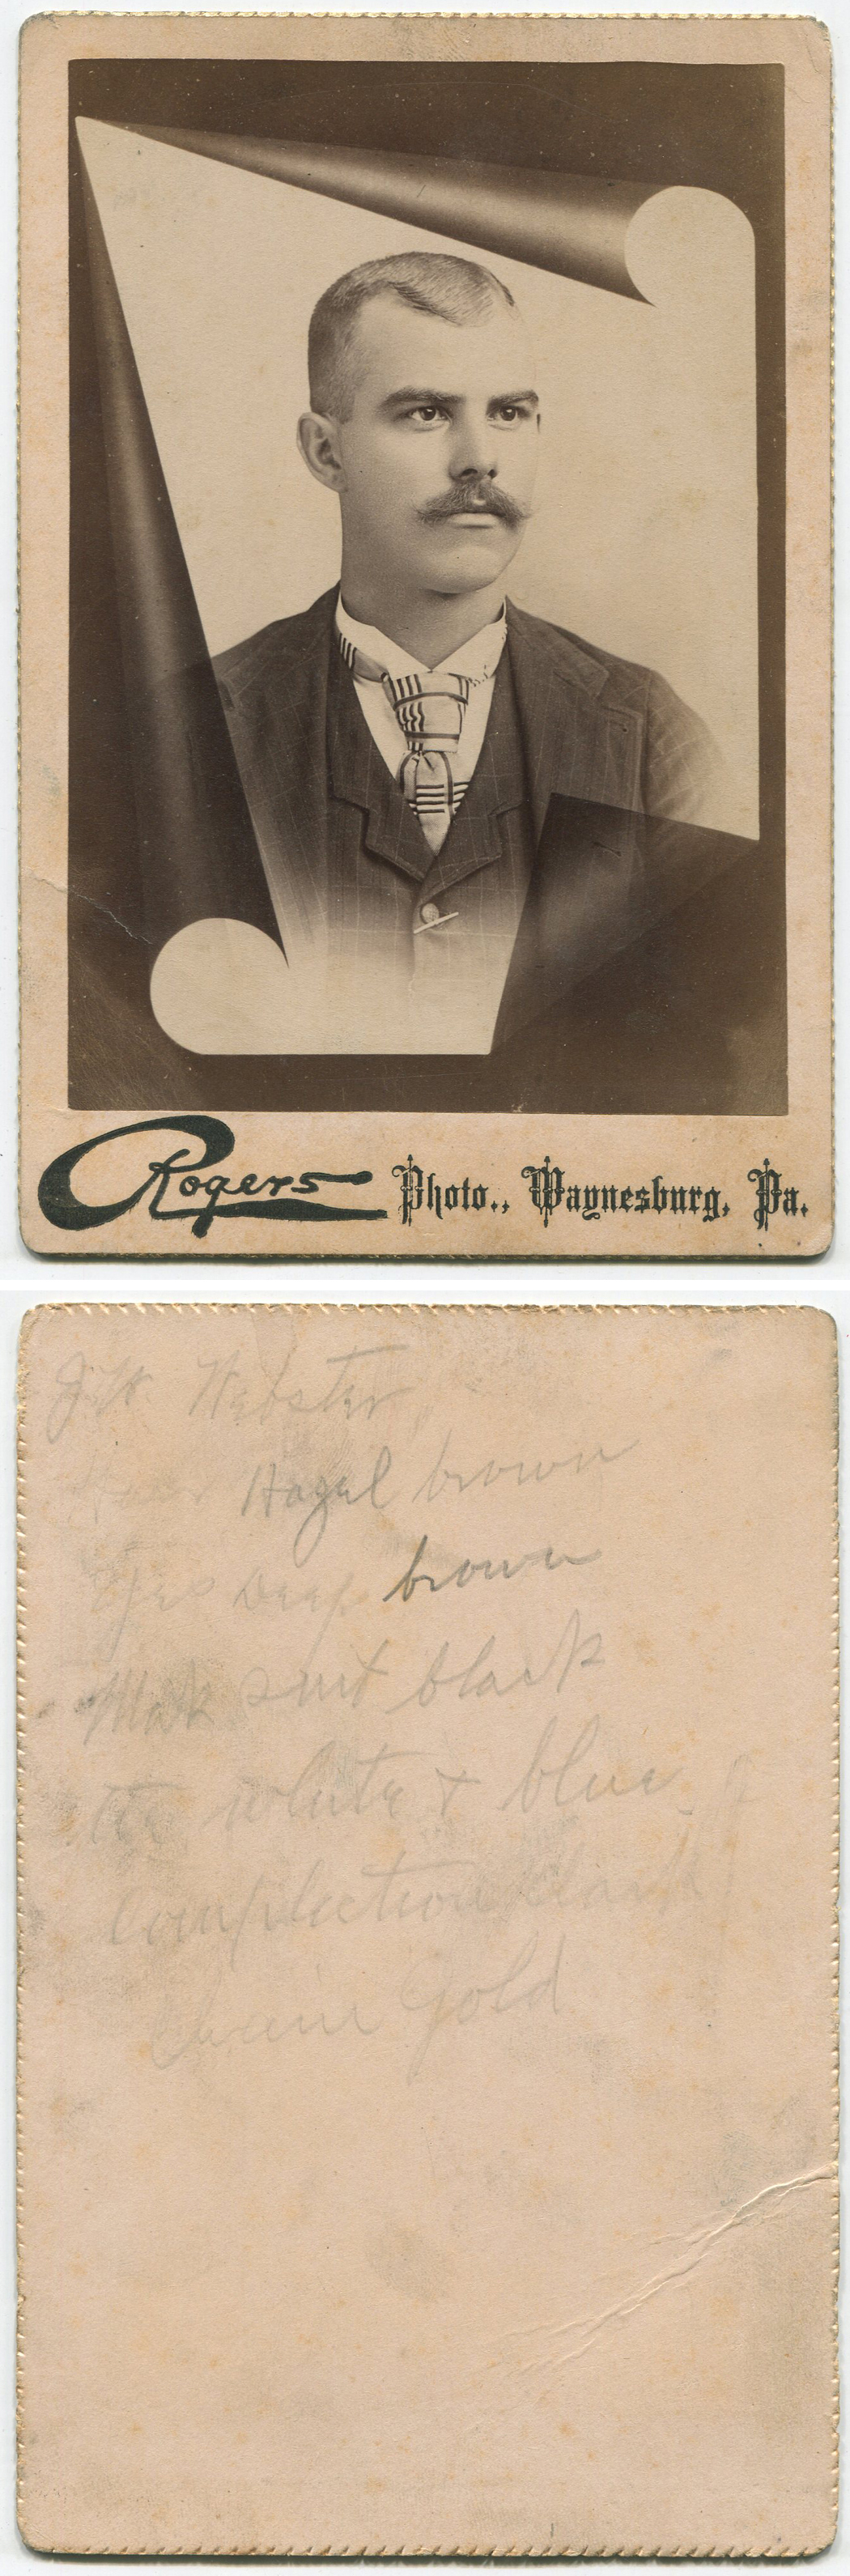 Rogers Photo., Waynesburg, Pa.
J.W. Webster
Hazel brown
Eyes Deep brown
Mak suit black
tie white & blue
Complection
Chain Gold